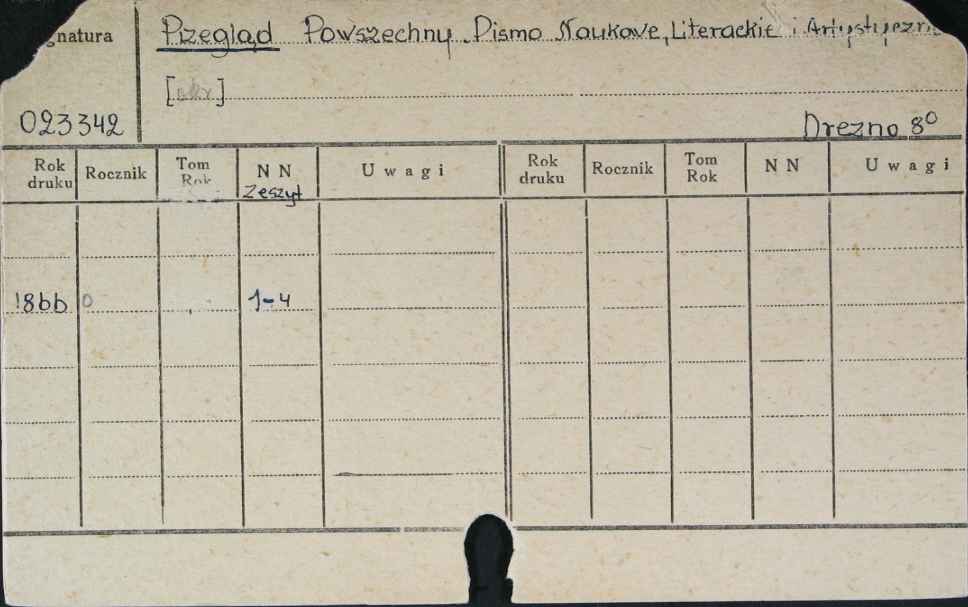 gnatura Przegląd Powszechny. Pismo Naukowe, Literackie i Artystyczn
[nkr]
023342 Drezno 8°
Rok druku Rocznik Tom Rok N N Zeszyt Uwagi Rok druku Rocznik Tom Rok N N Uwagi
1866 0 1-4